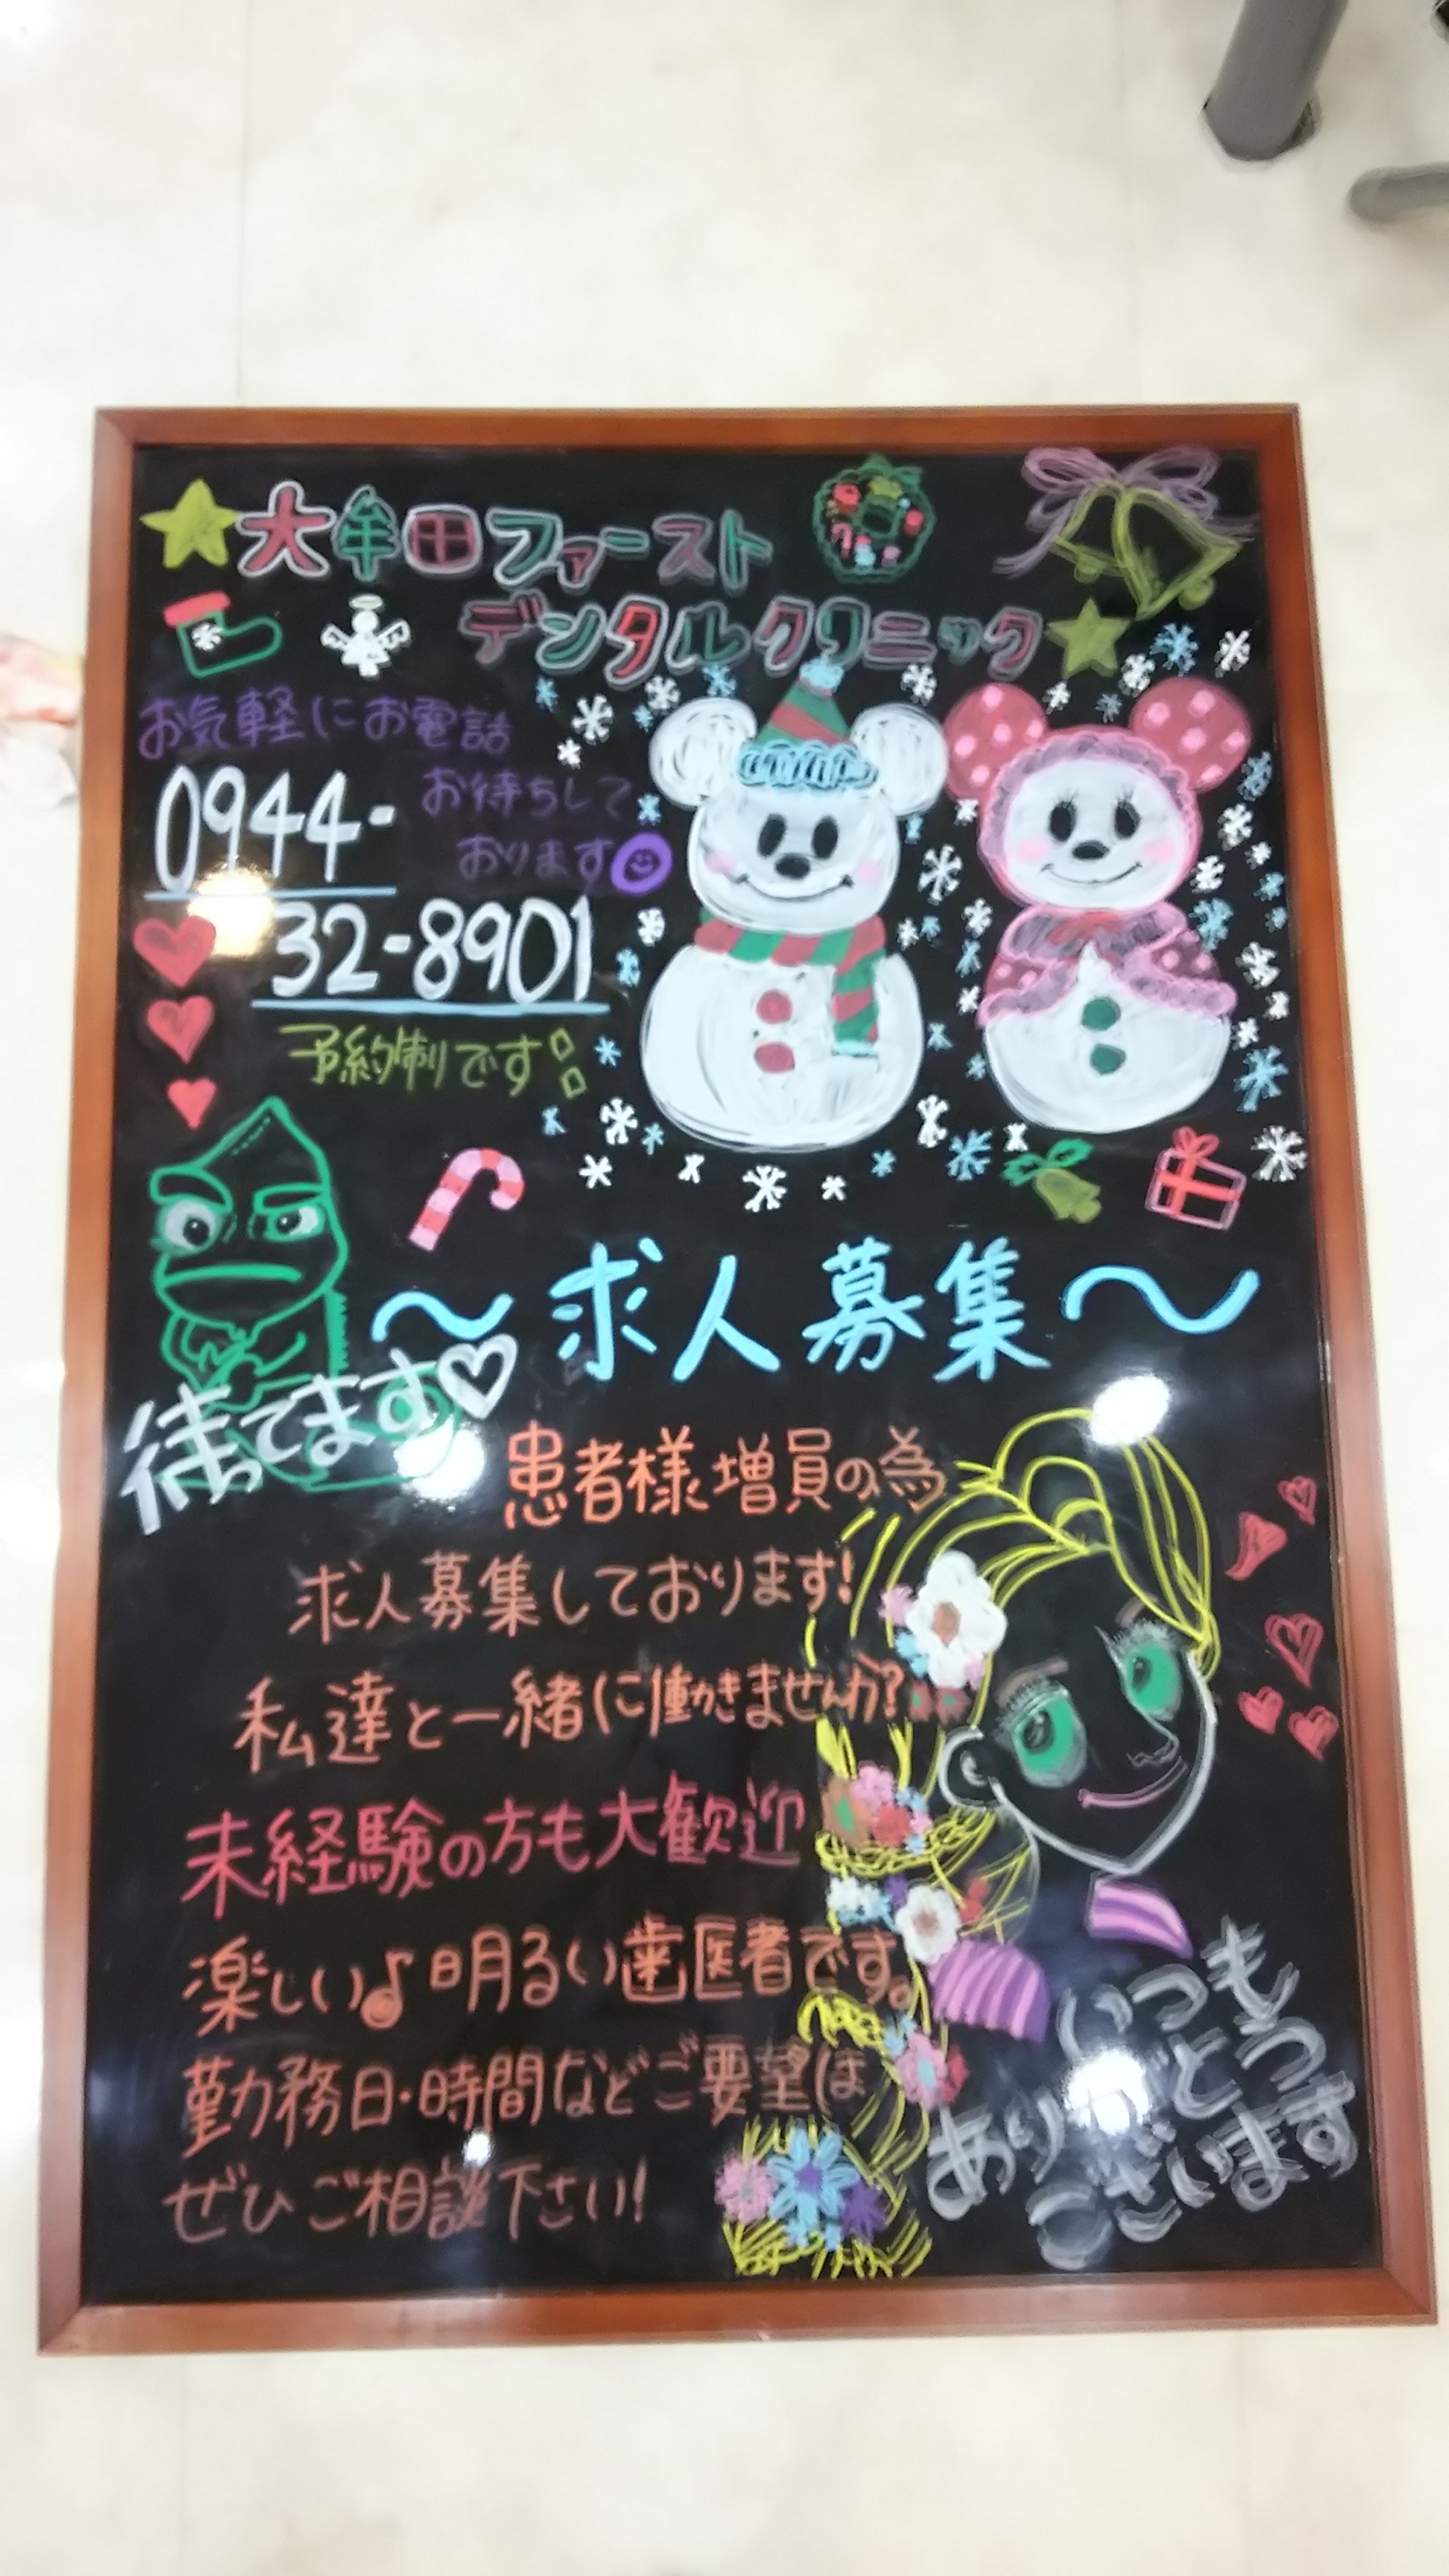 ★大牟田ファースト
デンタルクリニック★
お気軽にお電話
お待ちして
おります
0944-
32-8901
予約制です
～求人募集～
待ってます♡
患者様増員の為
求人募集しております!
私達と一緒に働きませんか?
未経験の方も大歓迎
楽しい♪明るい歯医者です。
勤務日・時間などご要望は
ぜひご相談下さい!
いつも
ありがとう
ございます